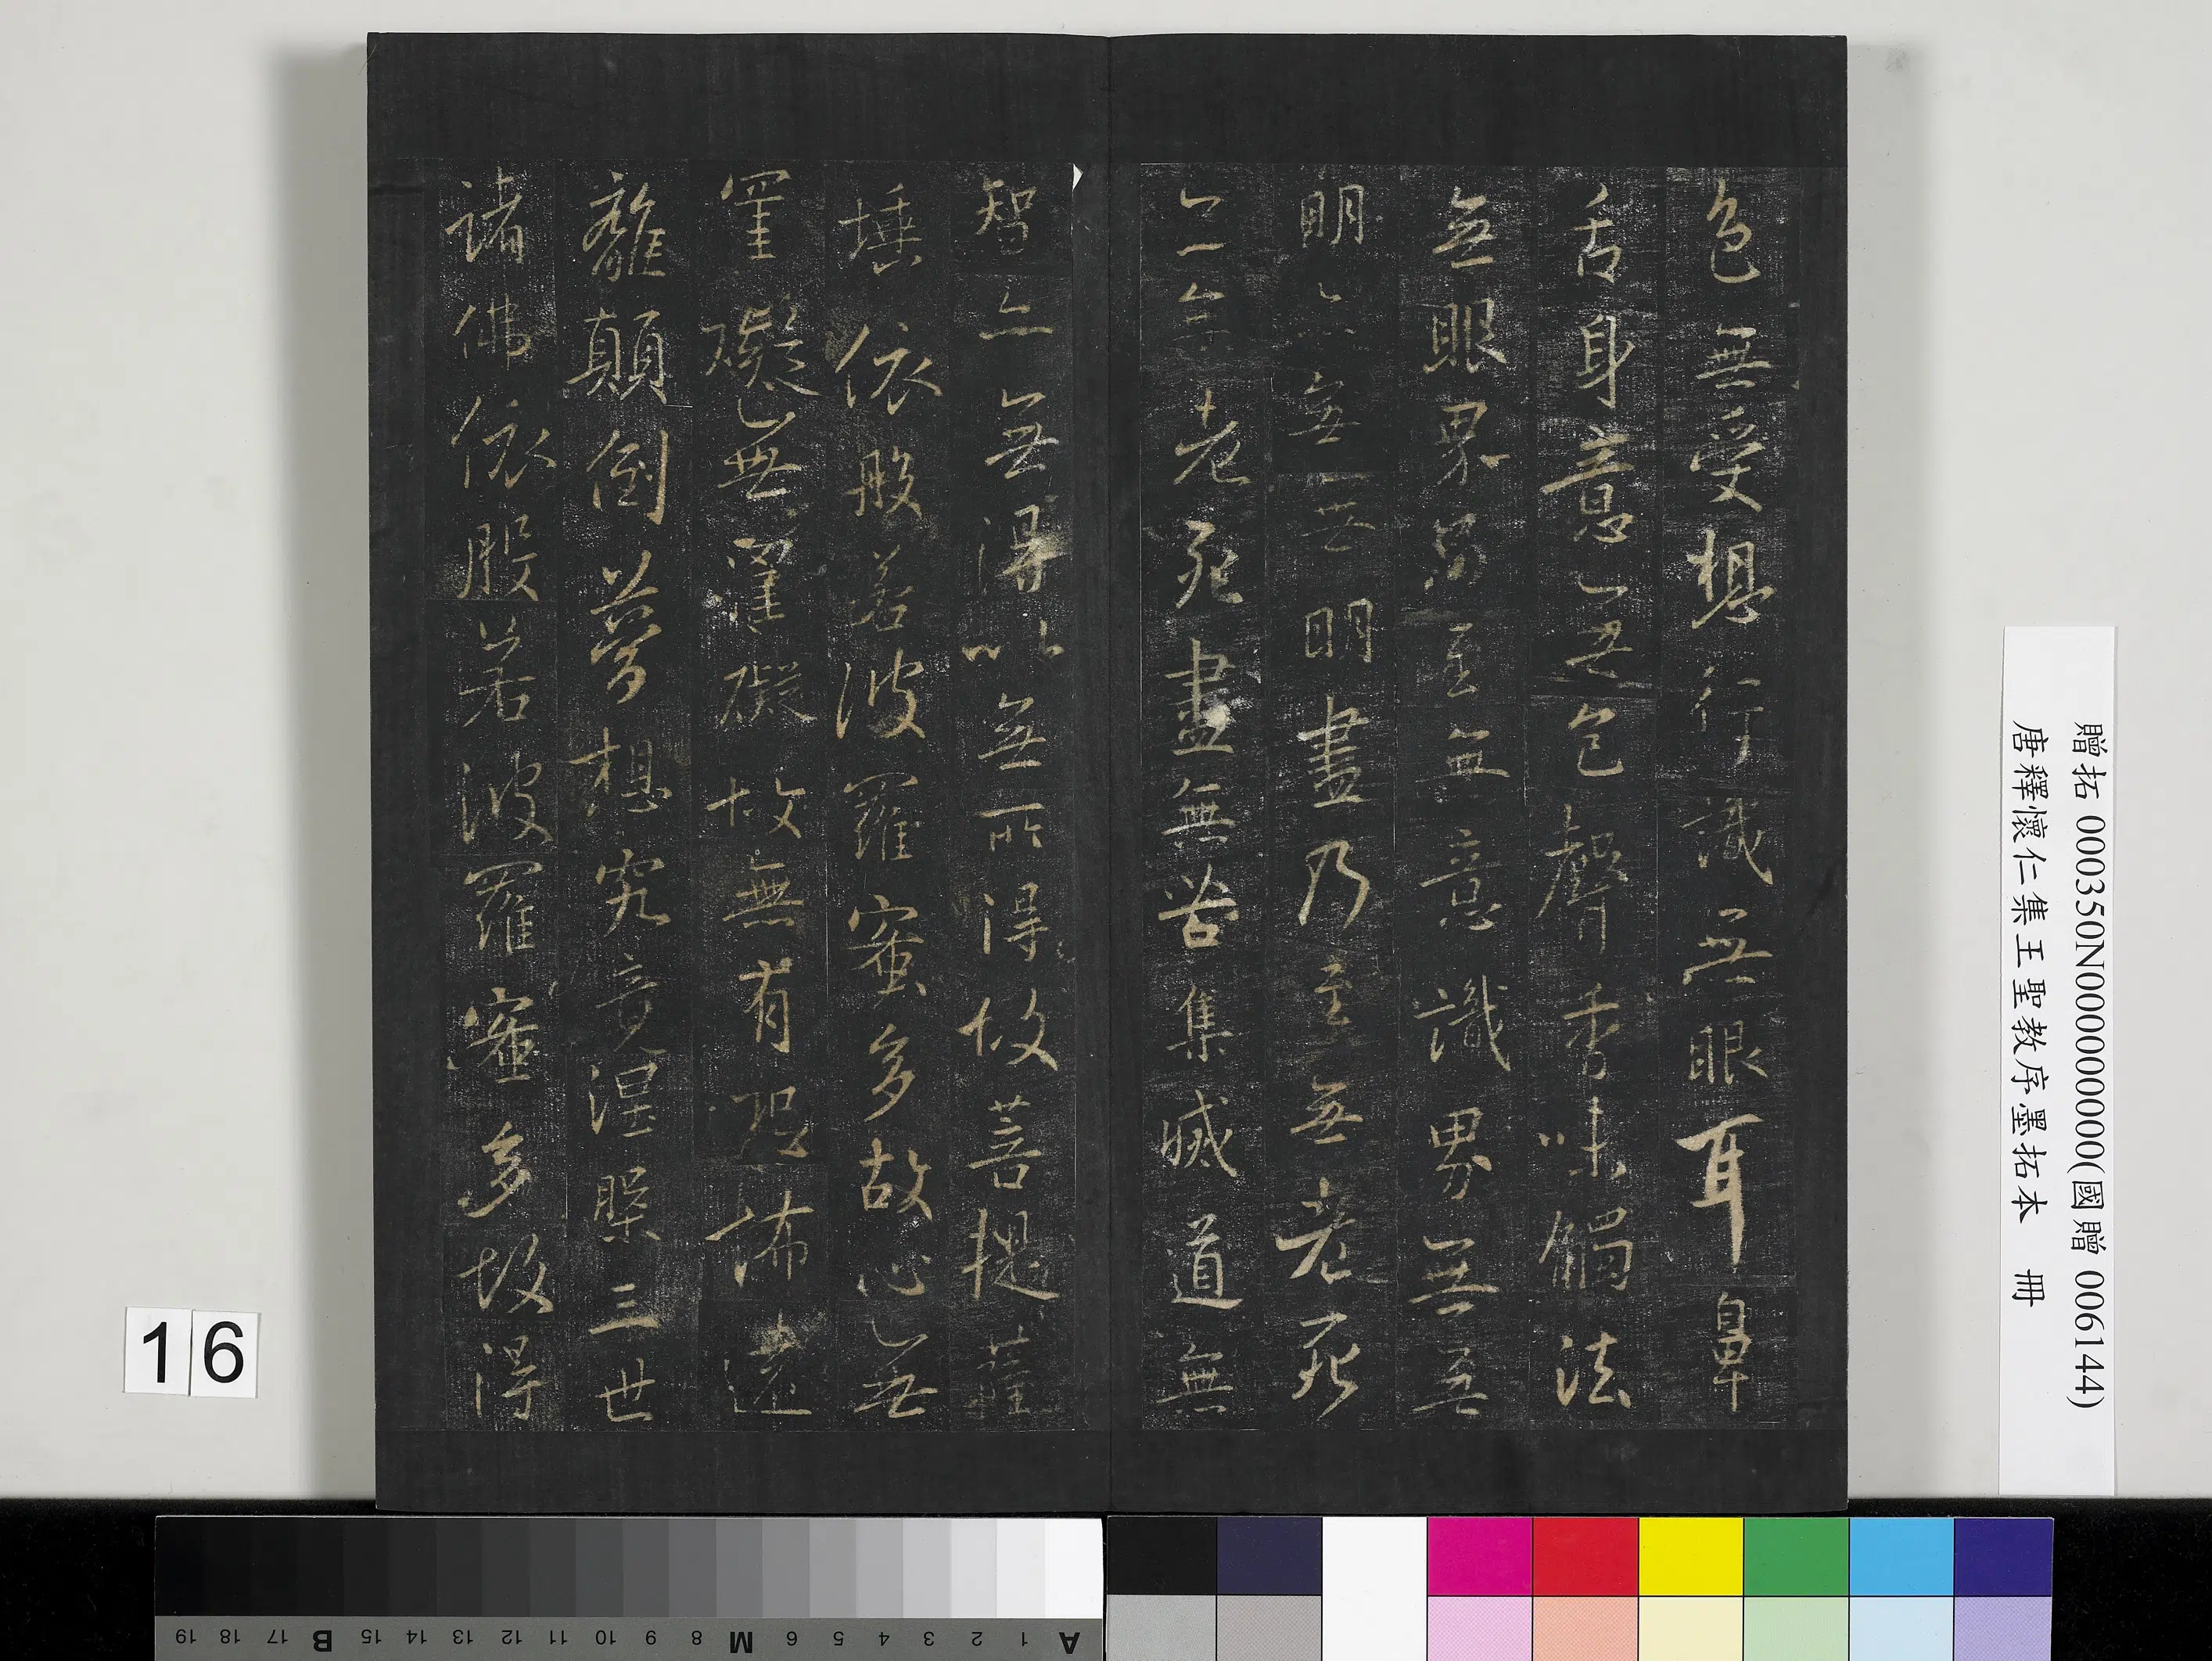 色無受想行識無眼耳鼻
舌身意無色聲香味觸法
無眼界乃至無意識界無無
明亦無無明盡乃至無老死
亦無老死盡無苦集滅道無
智亦無得以無所得故菩提薩
埵依般若波羅蜜多故心無
罣礙無罣礙故無有恐怖遠
離顛倒夢想究竟涅槃三世
諸佛依般若波羅蜜多故得
贈拓 000350N000000000(國贈 006144)
唐釋懷仁集王聖教序墨拓本 冊
16
A 1 2 3 4 5 6 M 8 9 10 11 12 13 14 15 B 17 18 19